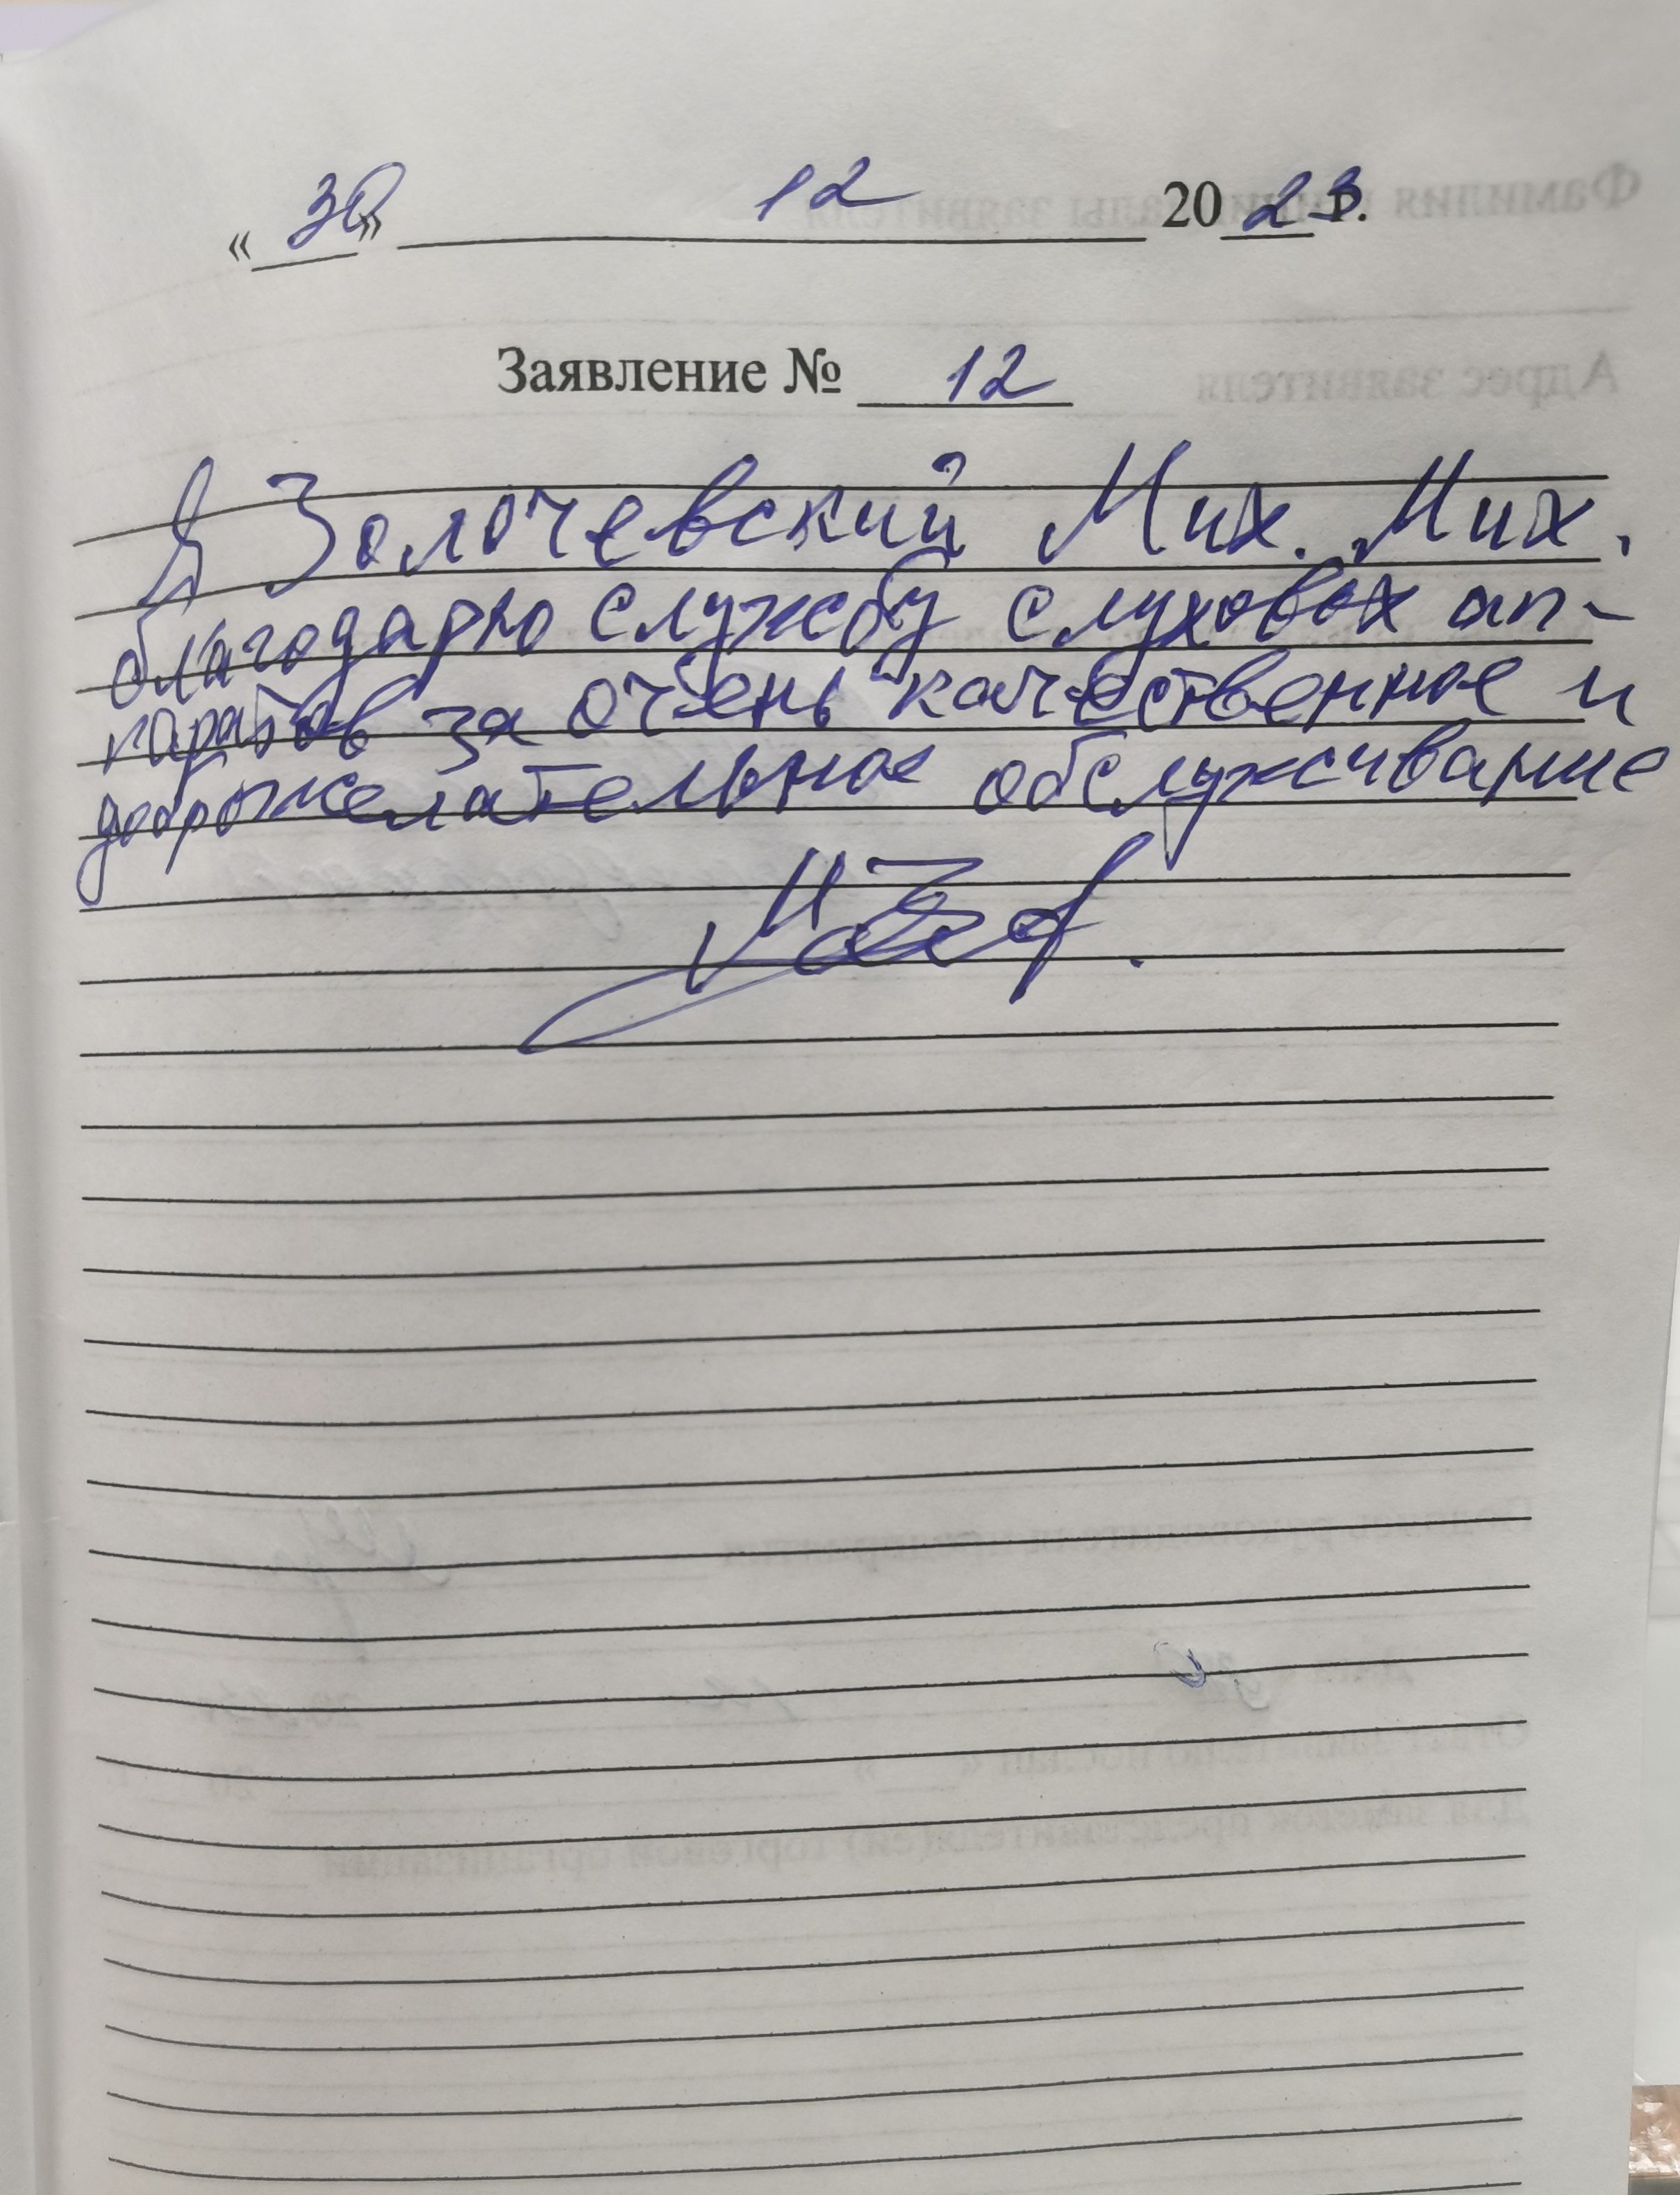 «30» 12 2023г.
Заявление № 12
Я Золочевский Мих. Мих.
благодарю службу слуховых ап-
паратов за очень качественное и
доброжелательное обслуживание